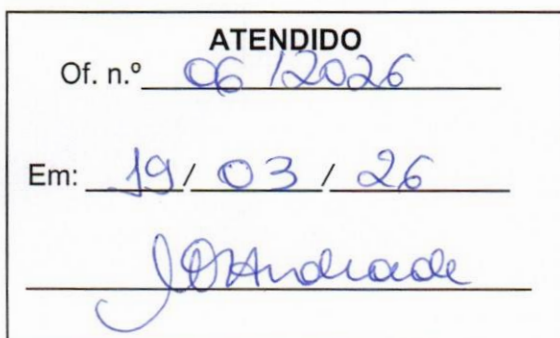 ATENDIDO
Of. n.º 06/2026
Em: 19/03/26
JOAndrade